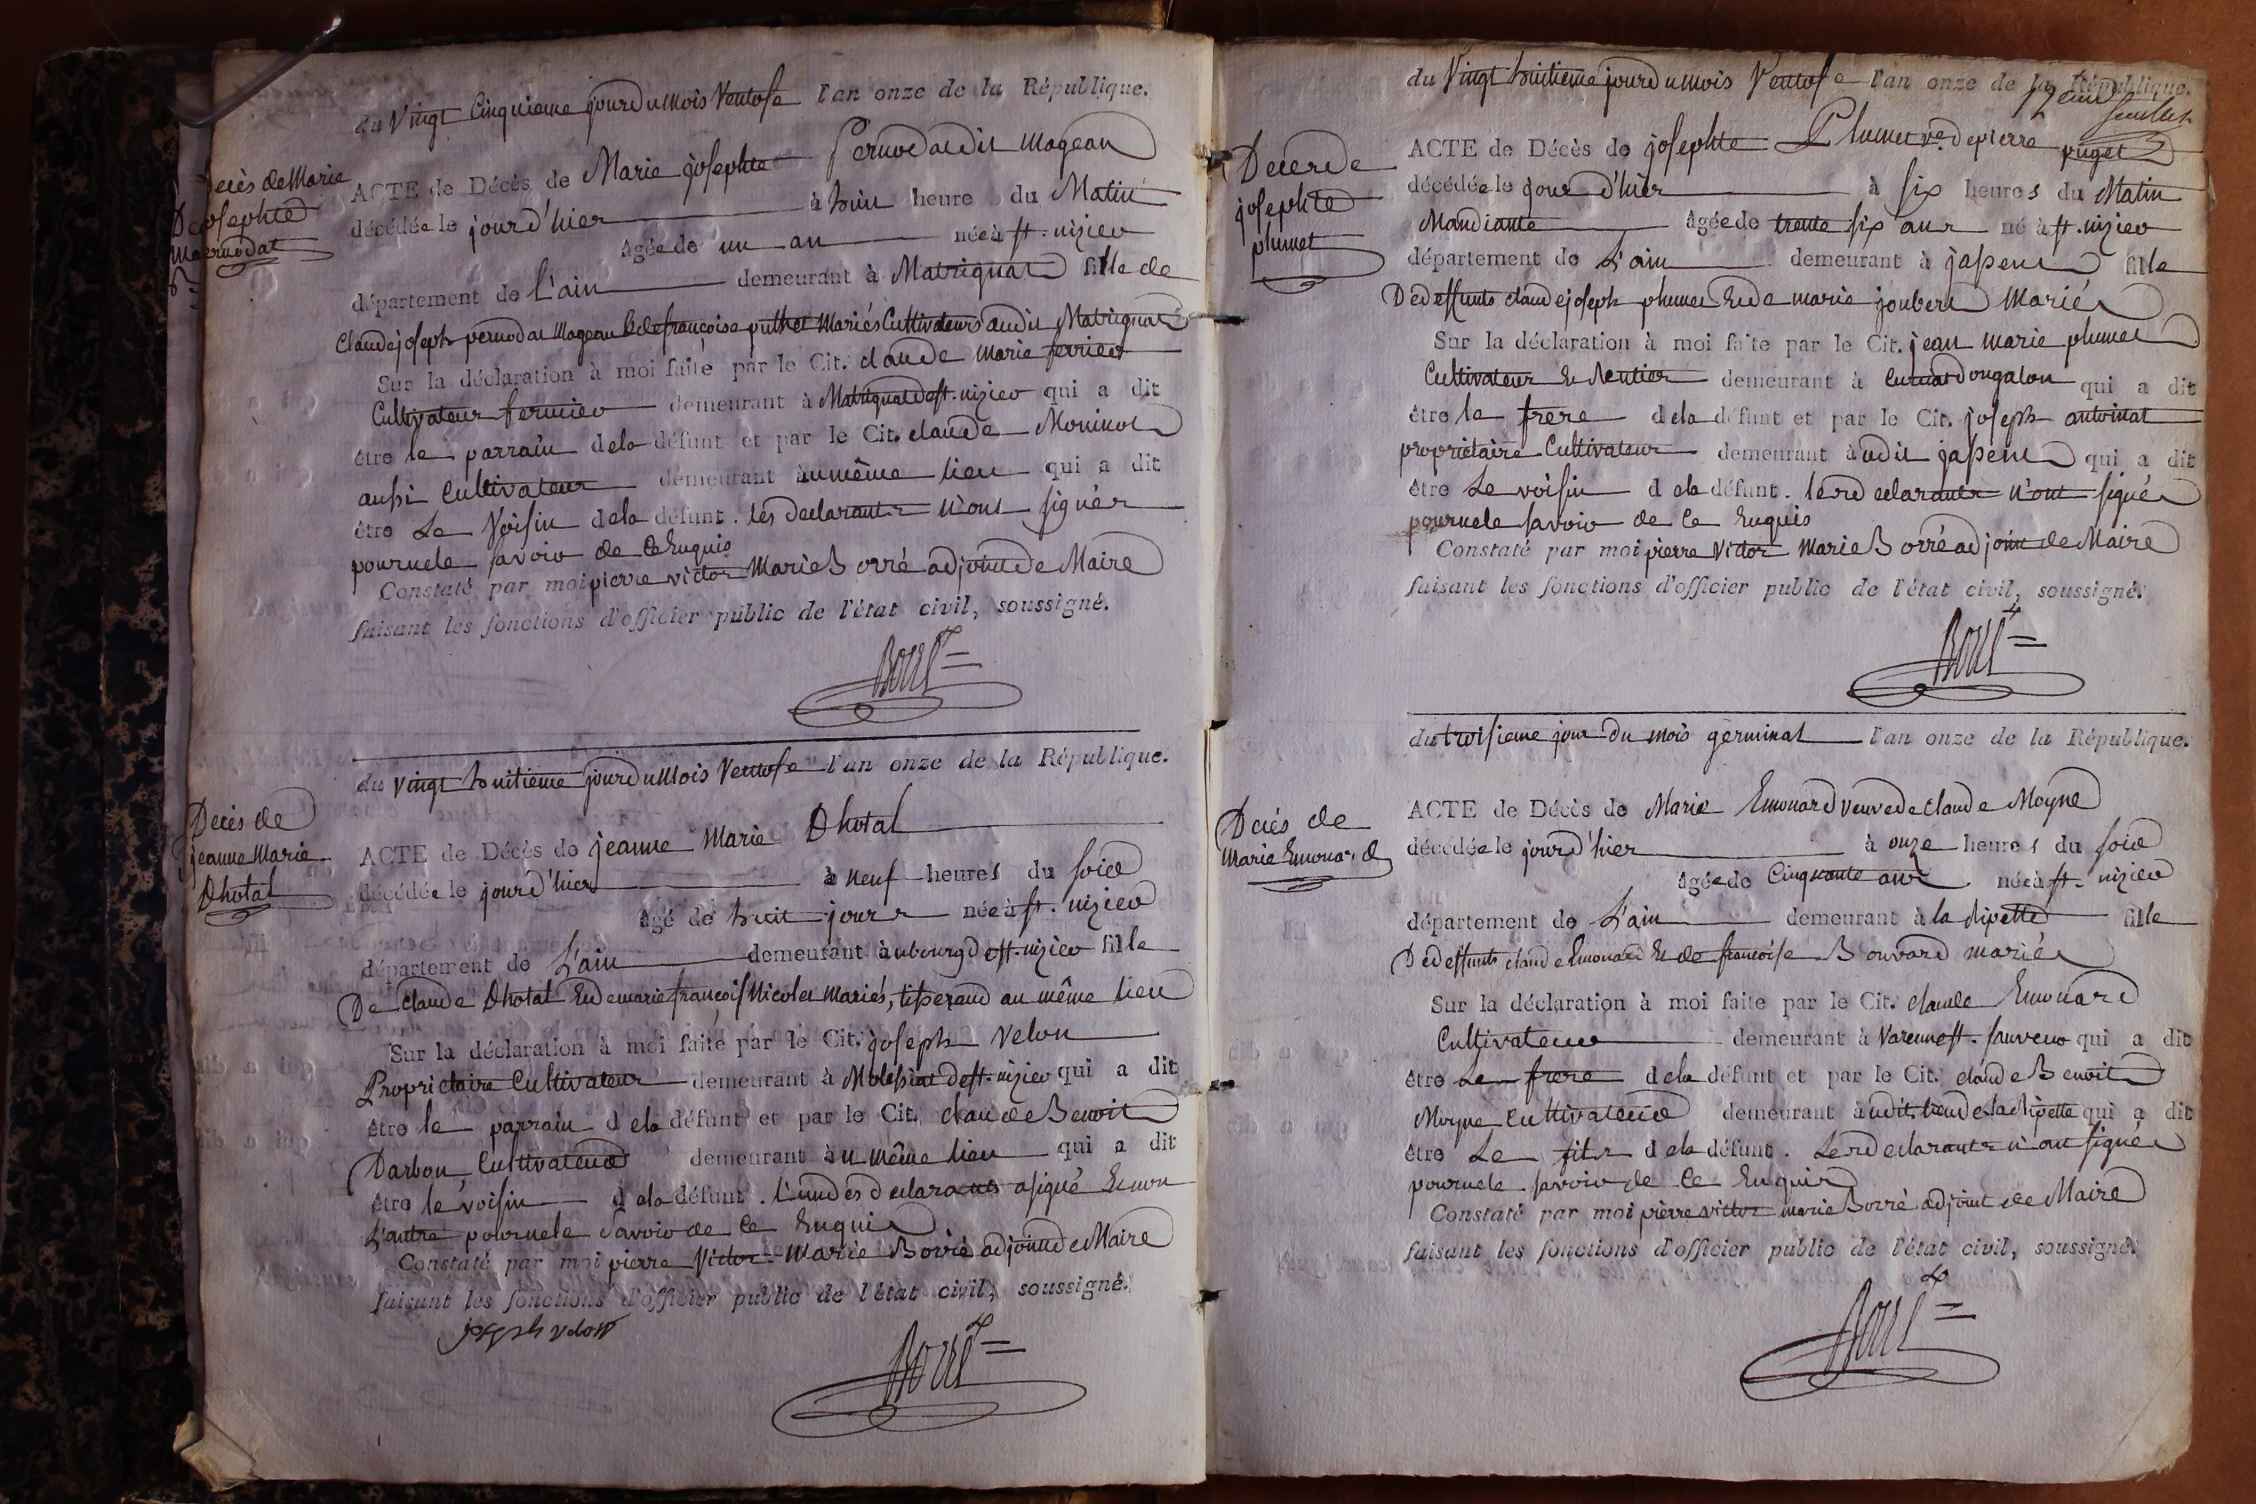 du Vingt Cinquieme jour du mois Ventose l'an onze de la République.
Decès de Marie
josephte
pernodat
ACTE de Décès de Marie josephte Pernodat dit Mogean
décédée le jour d'hier à huit heure du Matin
âgée de un an née à st. nizier
département de L'ain demeurant à Matrignat fille de
Claude joseph pernodat Mogean & de françoise puthet Mariés Cultivateurs audit Matrignat
Sur la déclaration à moi faite par le Cit. claude marie ferrier
Cultivateur fermier demeurant à Matrignat de st. nizier qui a dit
être le parrain de la défunt et par le Cit. claude Moninot
aussi Cultivateur demeurant au même lieu qui a dit
être Le Voisin de la défunt. les declarants n'ont signés
pour ne le savoir de ce Enquis
Constaté par moi pierre victor Marie Borré adjoint de Maire
faisant les fonctions d'officier public de l'état civil, soussigné.
Borré
du vingt huitieme jour du Mois Ventose l'an onze de la République.
Decès de
jeanne Marie
Dhotal
ACTE de Décès de jeanne Marie Dhotal
décédée le jour d'hier à neuf heures du soir
âgé de huit jours née à st. nizier
département de L'ain demeurant au bourg de st. nizier fille
De Claude Dhotal Et de marie françois Nicolet Mariés, tisserand au même lieu
Sur la déclaration à moi faite par le Cit. joseph Velon
Proprietaire Cultivateur demeurant à Molessiat de st. nizier qui a dit
être le parrain de la défunt et par le Cit. claude Benoit
Darbon, Cultivateur demeurant au même lieu qui a dit
être le voisin de la défunt. L'un des declarants a signé Et non
L'autre pour ne le Savoir de ce Enquis
Constaté par moi pierre Victor Marie Borré adjoint de Maire
faisant les fonctions d'officier public de l'état civil, soussigné.
joseph velon
Borré
du Vingt huitieme jour du mois Ventose l'an onze de la République.
feuillet
Decès de
josephte
plumet
ACTE de Décès de josephte Plumet ve. de pierre puget
décédée le jour d'hier à six heures du Matin
Mandiante âgée de trente six ans né à st. nizier
département de L'ain demeurant à japent fille
De deffunts claude joseph plumet Et de marie joubert Mariés
Sur la déclaration à moi faite par le Cit. jean marie plumet
Cultivateur Et Rentier demeurant à dougalon qui a dit
être le frere de la défunt et par le Cit. joseph antoinat
proprietaire Cultivateur demeurant audit japent qui a dit
être Le voisin de la défunt. les declarants n'ont signés
pour ne le savoir de ce Enquis
Constaté par moi pierre Victor Marie Borré adjoint de Maire
faisant les fonctions d'officier public de l'état civil, soussigné.
Borré
du troisieme jour du mois germinal l'an onze de la République.
Decès de
Marie Emonard
ACTE de Décès de Marie Emonard veuve de claude Moyne
décédée le jour d'hier à onze heures du soir
âgée de Cinquante ans née à st. nizier
département de L'ain demeurant à la ripette fille
De deffunts claude Emonard Et de francoise Bouvard mariés
Sur la déclaration à moi faite par le Cit. claude Emonard
Cultivateur demeurant à Varenne st. sauveur qui a dit
être Le frere de la défunt et par le Cit. claude Benoit
Moyne Cultivateur demeurant audit lieu de la ripette qui a dit
être Le fils de la défunt. Les declarants n'ont signés
pour ne le savoir de ce Enquis
Constaté par moi pierre victor marie Borré adjoint de Maire
faisant les fonctions d'officier public de l'état civil, soussigné.
Borré